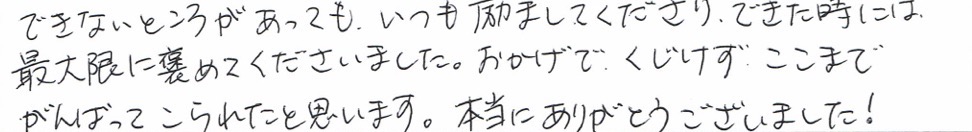 できないところがあっても、いつも励ましてくださり、できた時には、
最大限に褒めてくださいました。おかげで、くじけず、ここまで
がんばってこられたと思います。本当にありがとうございました!